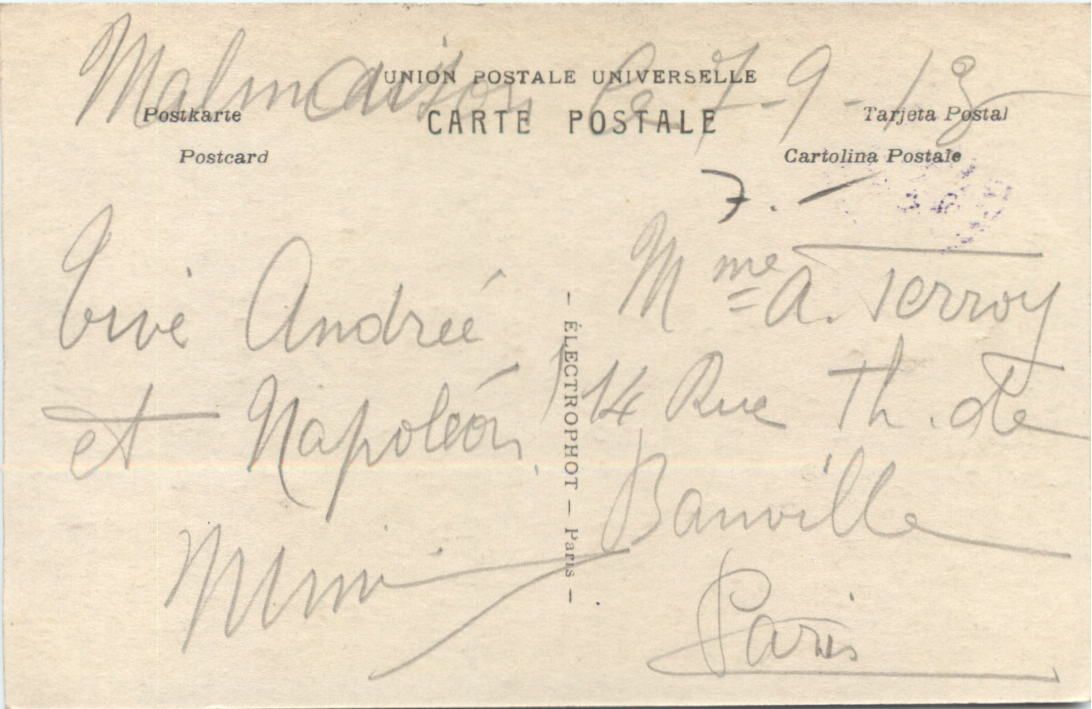 Malmaison le 7-9-13
UNION POSTALE UNIVERSELLE
Postkarte CARTE POSTALE Tarjeta Postal
Postcard Cartolina Postale
7. -
Mme A. Terroy
14 Rue Th. de
Banville
Paris
Andrée
et Napoléon
Mimi
- ÉLECTROPHOT - Paris -